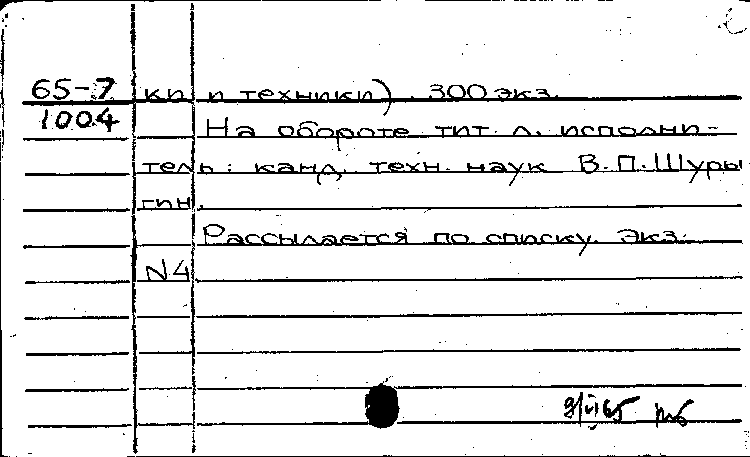 65-7 ки и техники). 300 экз.
1004 На обороте тит. л. исполни-
тель: канд. техн. наук В. П. Шуры
гин.
Рассылается по списку. Экз.
N4